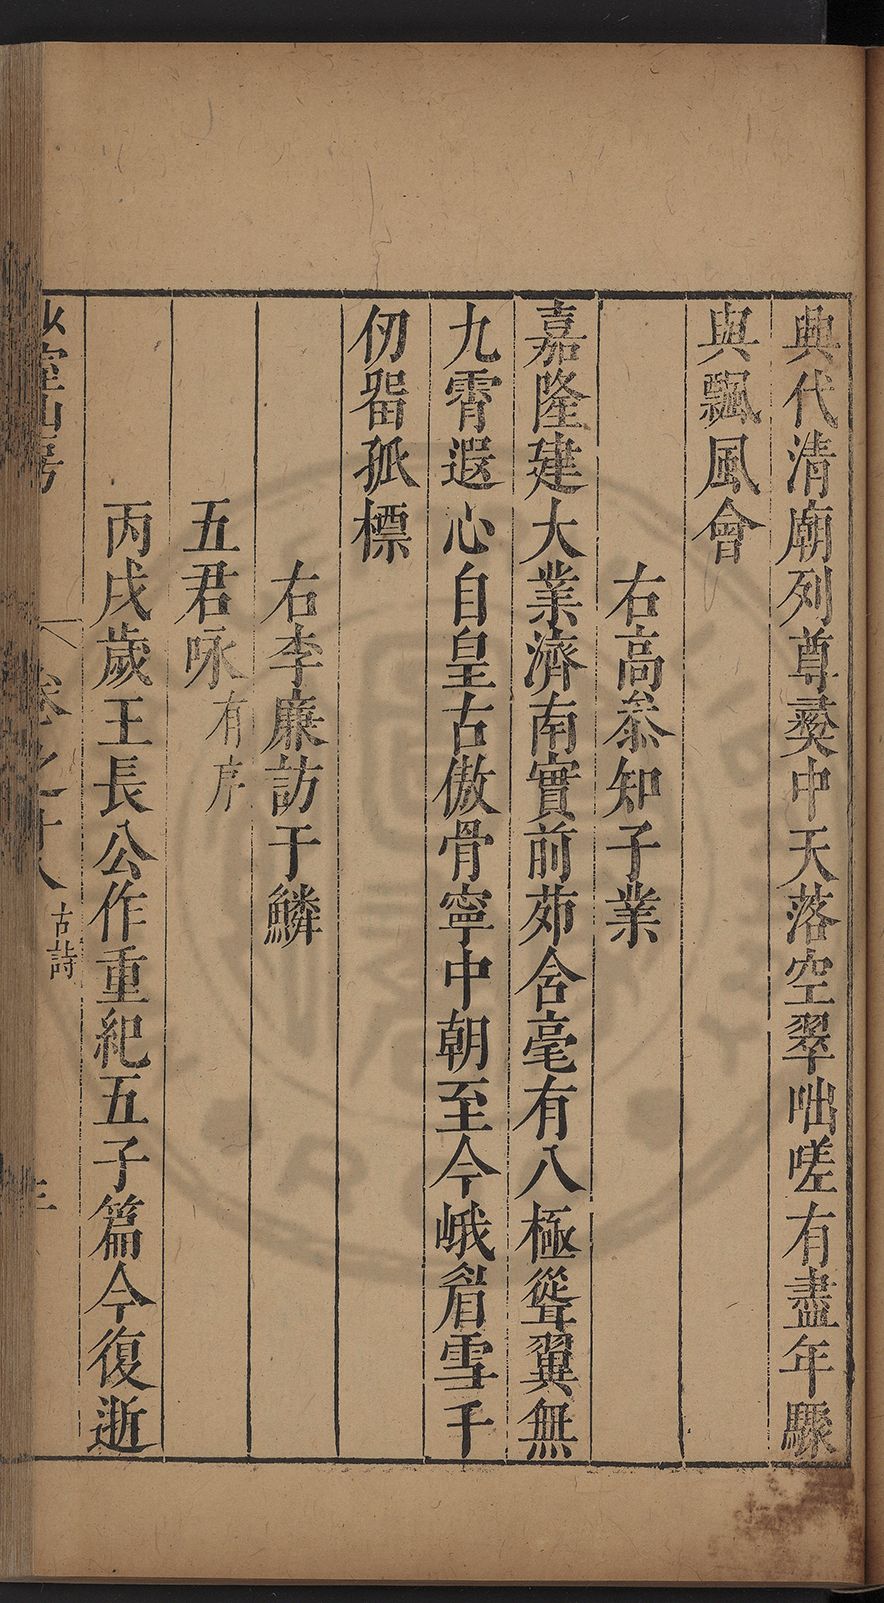 典代清廟列尊彛中天落空翠咄嗟有盡年驟
與飄風會
右高叅知子業
嘉隆建大業濟南實前茆含毫有八極聳翼無
九霄遐心自皇古傲骨寧中朝至今峨眉雪千
仞畱孤標
右李廉訪于鱗
五君咏有序
丙戌歲王長公作重紀五子篇今復逝
室山房
卷之十八 古詩